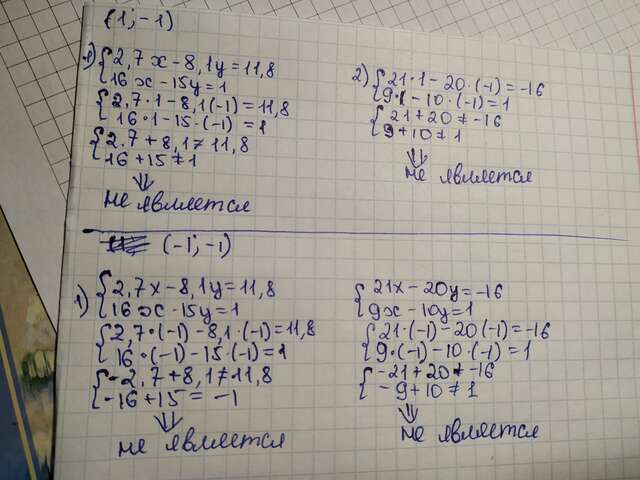 (1; -1)
1) {2,7x - 8,1y = 11,8
16x - 15y = 1
{2,7·1 - 8,1(-1) = 11,8
16·1 - 15·(-1) = 1
{2.7 + 8,1 ≠ 11,8
16 + 15 ≠ 1
⇓
не является
2) {21·1 - 20·(-1) = -16
9·1 - 10·(-1) = 1
{21 + 20 ≠ -16
9 + 10 ≠ 1
⇓
не является
(-1; -1)
1) {2,7x - 8,1y = 11,8
16x - 15y = 1
{2,7·(-1) - 8,1·(-1) = 11,8
16·(-1) - 15·(-1) = 1
{-2,7 + 8,1 ≠ 11,8
-16 + 15 = -1
⇓
не является
{21x - 20y = -16
9x - 10y = 1
{21·(-1) - 20(-1) = -16
9·(-1) - 10·(-1) = 1
{-21 + 20 ≠ -16
-9 + 10 ≠ 1
⇓
не является